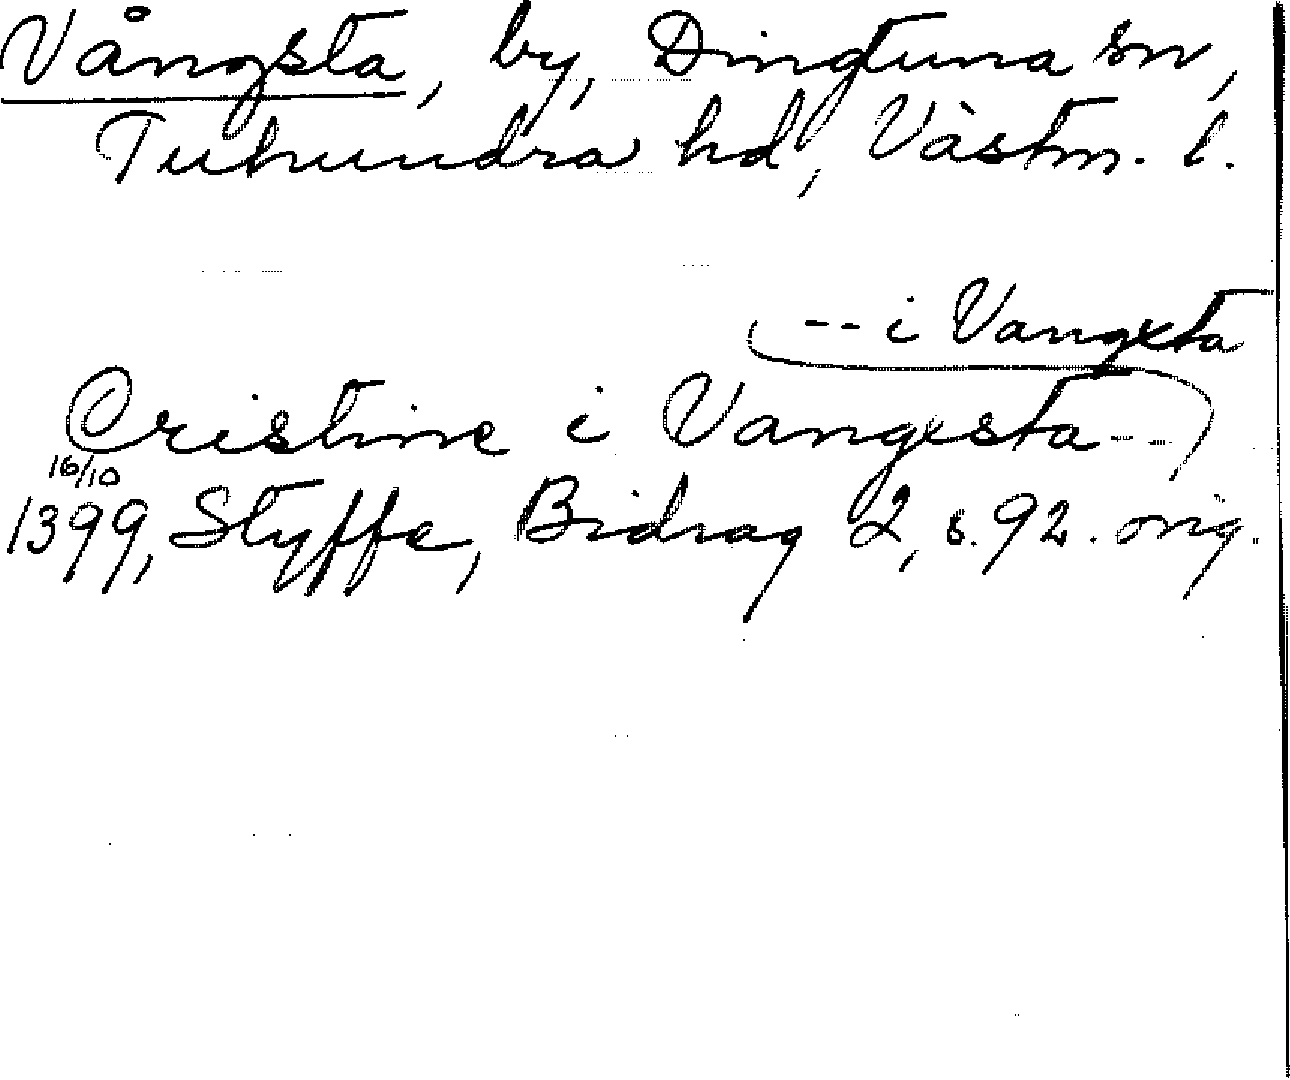 Vångsta, by, Dingtuna sn,
Tuhundra hd, Västm. l.
-- i Vangxta
Cristine i Vangxsta -- 
16/10
1399, Styffe, Bidrag 2, s. 92. orig.